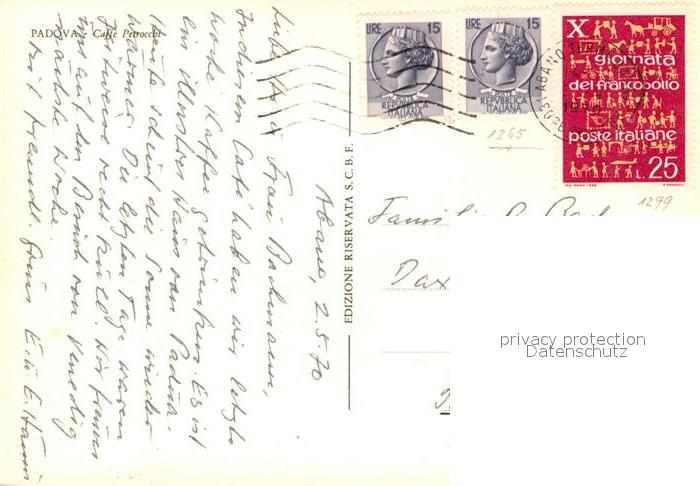 PADOVA - Caffe Petrocchi
Abano, 2.5.70
Liebe Frau Bachmann,
In diesem Café haben wir letzte
Woche Kaffee getrunken. Es ist
ein altes Haus von Padua.
Heute scheint die Sonne wieder
warm. Die letzten Tage waren
teilweise recht kühl. Wir freuen
uns auf den Besuch von Venedig
nächste Woche.
Mit freundl. Gruss E. u. E.
EDIZIONE RISERVATA S. C. B. F.
LIRE 15
REPVBBLICA
ITALIANA
LIRE 15
REPVBBLICA
ITALIANA
1265
X
giornata
del francobollo
poste italiane
L. 25
1299
ABANO TERME
Familie
Dax
privacy protection
Datenschutz